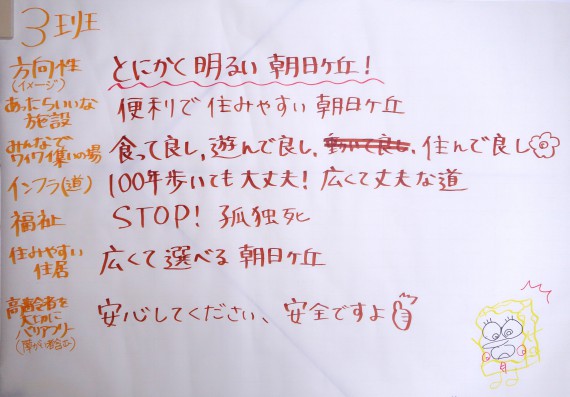 3班
方向性
(イメージ)
とにかく明るい朝日ヶ丘!
あったらいいな
施設
便利で住みやすい朝日ヶ丘
みんなで
ワイワイ集いの場
食って良し,遊んで良し、住んで良し
インフラ(道)
100年歩いても大丈夫!広くて丈夫な道
福祉
STOP!孤独死
住みやすい
住居
広くて選べる朝日ヶ丘
高齢者を
大切に
バリアフリー
(障がい者含む)
安心してください、安全ですよ